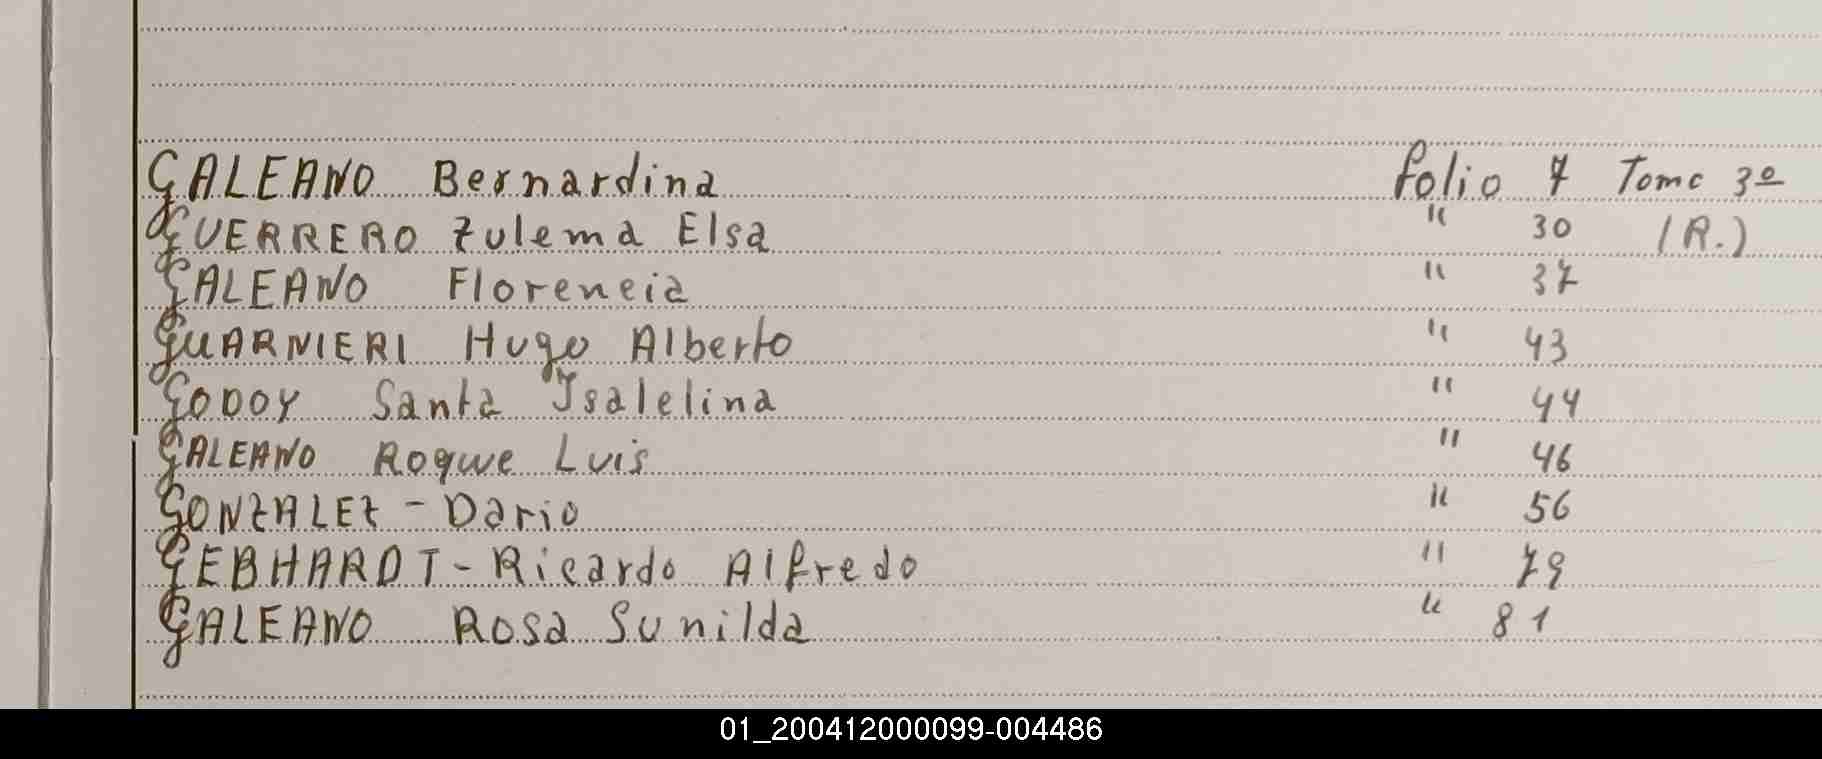 GALEANO Bernardina folio 7 Tomo 3º
GUERRERO Zulema Elsa " 30 (R.)
GALEANO Florencia " 37
GUARNIERI Hugo Alberto " 43
GODOY Santa Isalelina " 44
GALEANO Roque Luis " 46
GONZALEZ - Dario " 56
GEBHARDT - Ricardo Alfredo " 79
GALEANO Rosa Sunilda " 81
01_200412000099-004486